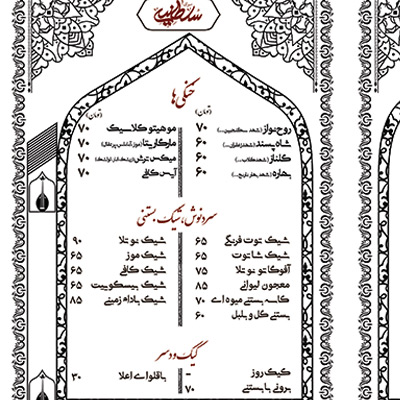 خنکی ها
(تومان)
روح نواز (شهد سکنجبین...) ۷۰
شاه پسند (شهد زعفران...) ۶۰
گلناز (شهد گلاب...) ۶۰
بهاره (شهد بهار نارنج...) ۶۰
(تومان)
موهیتو کلاسیک ۷۰
مارگاریتا (موز آناناس پرتقال) ۷۰
میکس ترش ۷۰
آیس کافی ۷۰
سردنوش، شیک، بستنی
شیک توت فرنگی ۶۵
شیک شاتوت ۶۵
آفوگاتو نوتلا ۷۵
معجون لیوانی ۸۵
کاسه بستنی میوه ای ۷۰
بستنی گل و بلبل ۶۰
شیک نوتلا ۹۰
شیک موز ۶۵
شیک کافی ۶۵
شیک بیسکوییت ۶۵
شیک بادام زمینی ۸۵
کیک و دسر
کیک روز -
برونی با بستنی ۷۰
باقلوای اعلا ۳۰